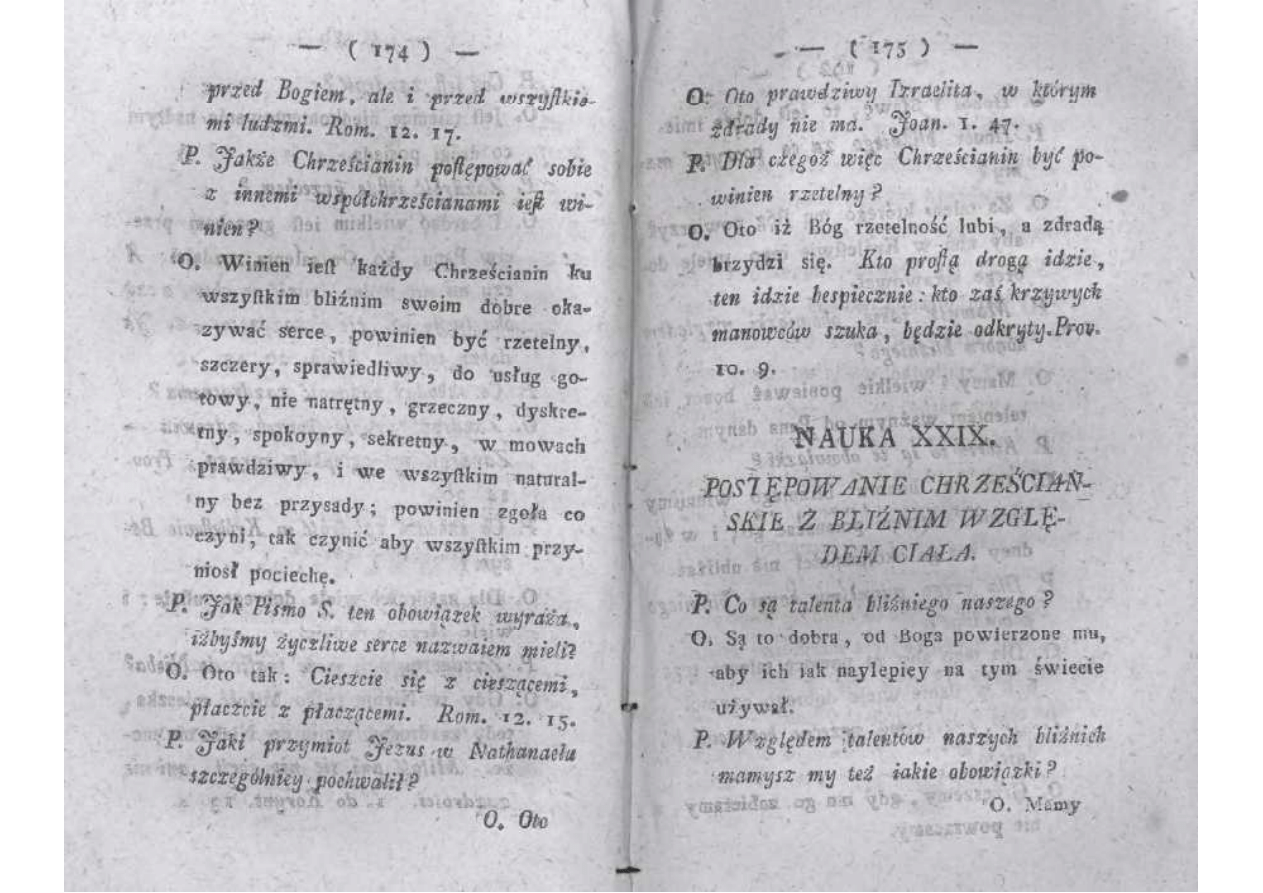 — ( 174 ) —
przed Bogiem, ale i przed wszyſtkie-
mi ludzmi. Rom. 12. 17.
P. Jakże Chrześcianin poſtępować sobie
z innemi współchrześcianami ieſt wi-
nien?
O. Winien ieſt każdy Chrześcianin ku
wszyſtkim bliźnim swoim dobre oka-
zywać serce, powinien być rzetelny,
szczery, sprawiedliwy, do usług go-
towy, nie natrętny, grzeczny, dyskre-
tny, spokoyny, sekretny, w mowach
prawdziwy, i we wszyſtkim natural-
ny bez przysady; powinien zgoła co
czyni, tak czynić aby wszyſtkim przy-
niosł pociechę.
P. Jak Pismo S. ten obowiązek wyraża,
iżbyśmy życzliwe serce nazwaiem mieli?
O. Oto tak: Cieszcie się z cieszącemi,
płaczcie z płaczącemi. Rom. 12. 15.
P. Jaki przymiot Jezus w Nathanaelu
szczególniey pochwalił?
O. Oto
— ( 175 ) —
O. Oto prawdziwy Izraelita, w którym
zdrady nie ma. Joan. 1. 47.
P. Dla czegoż więc Chrześcianin być po-
winien rzetelny?
O. Oto iż Bóg rzetelność lubi, a zdradą
brzydzi się. Kto proſtą drogą idzie,
ten idzie bespiecznie: kto zaś krzywych
manowców szuka, będzie odkryty. Prov.
10. 9.
NAUKA XXIX.
POSTĘPOWANIE CHRZEŚCIAŃ-
SKIE Z BLIŹNIM WZGLĘ-
DEM CIAŁA.
P. Co są talenta bliźniego naszego?
O. Są to dobra, od Boga powierzone mu,
aby ich iak naylepiey na tym świecie
używał.
P. Względem talentów naszych bliźnich
mamysz my też iakie obowiązki?
O. Mamy